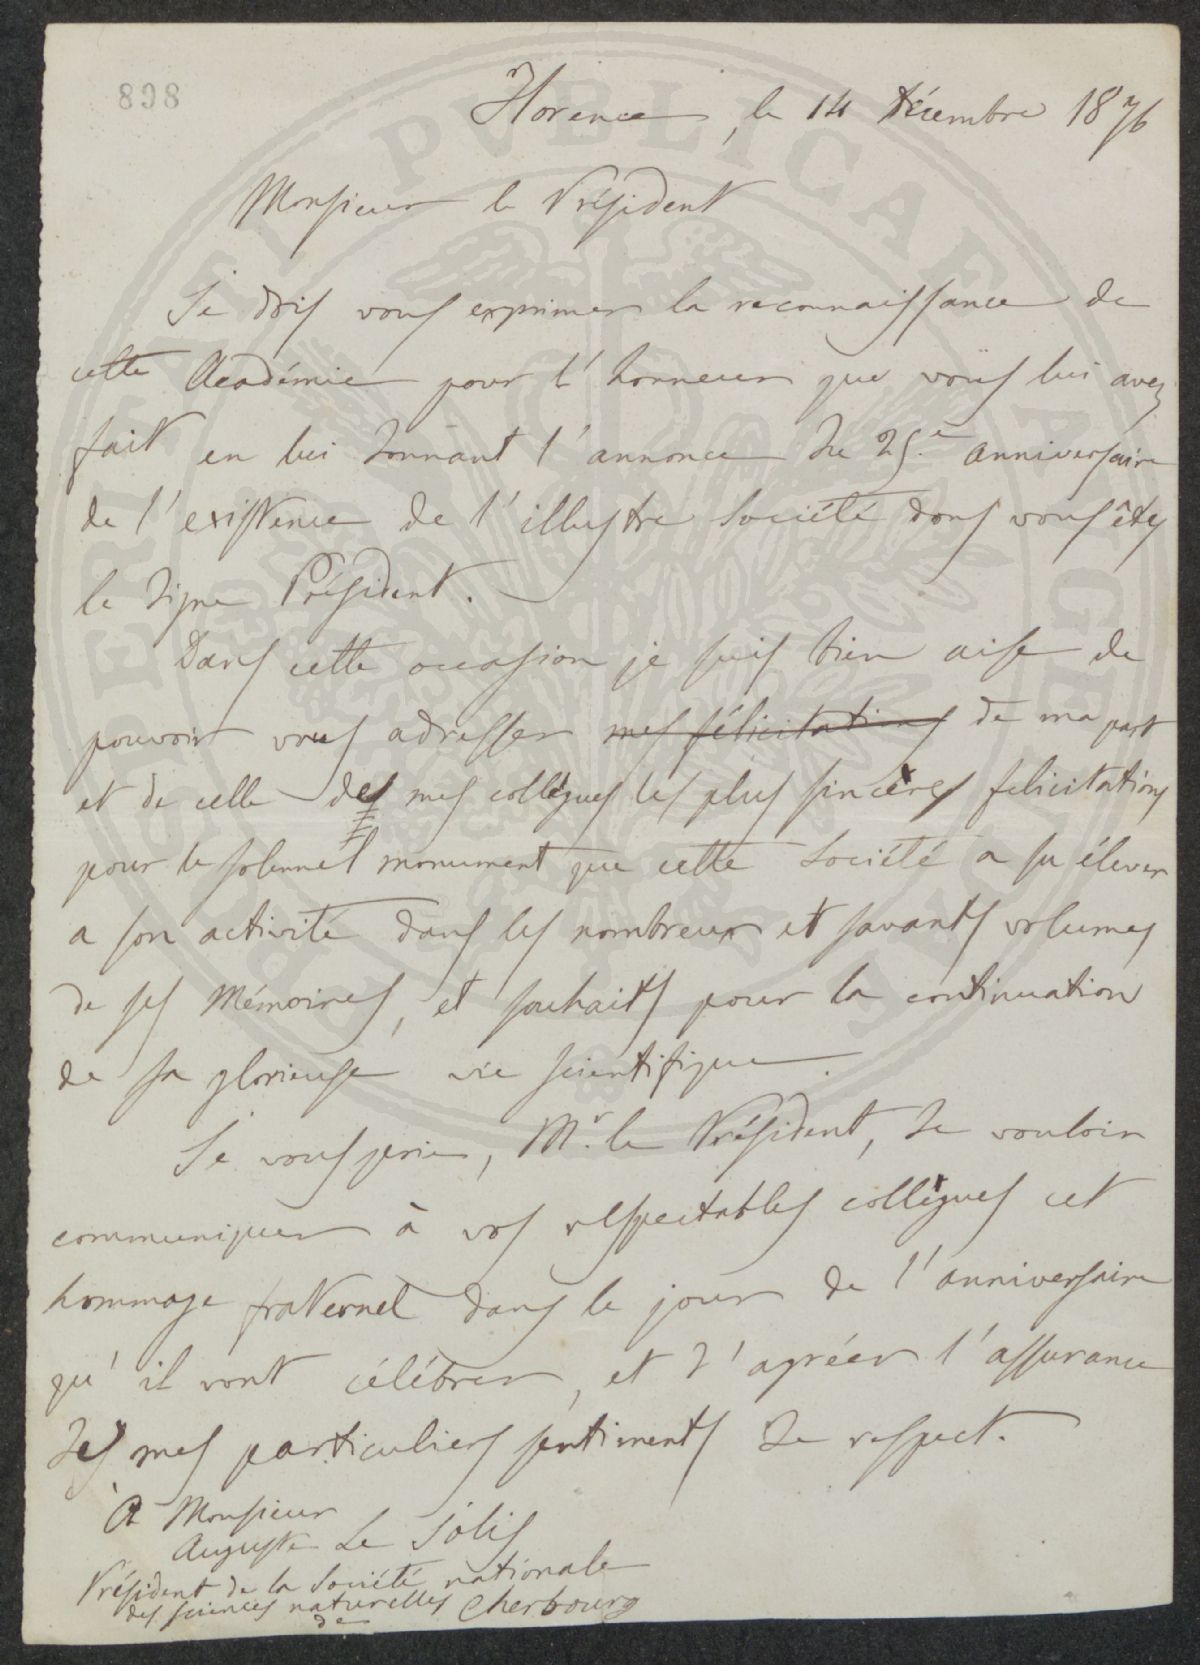 898
Florence, le 14 Décembre 1876
Monsieur le Président
Je dois vous exprimer la reconnaissance de
cette Académie pour l'honneur que vous lui avez
fait en lui donnant l'annonce du 25.e anniversaire
de l'existence de l'illustre Société dons vous êtes
le digne Président.
Dans cette occasion je suis bien aise de
pouvoir vous adresser mes félicitations de ma part
et de celle des mes collègues les plus sincères felicitations
pour le solennel monument que cette Société a su élever
a son activité dans les nombreux et savants volumes
de ses Mémoires, et souhaits pour la continuation
de sa glorieuse vie scientifique.
Je vous prie, Mr. le Président, de vouloir
communiquer à vos respectables collègues cet
hommage fraternel dans le jour de l'anniversaire
qu'il vont célébrer, et d'agréer l'assurance
des mes particuliers sentiments de respect.
A Monsieur
Auguste Le Jolis
Président de la Société nationale
des sciences naturelles Cherbourg
de